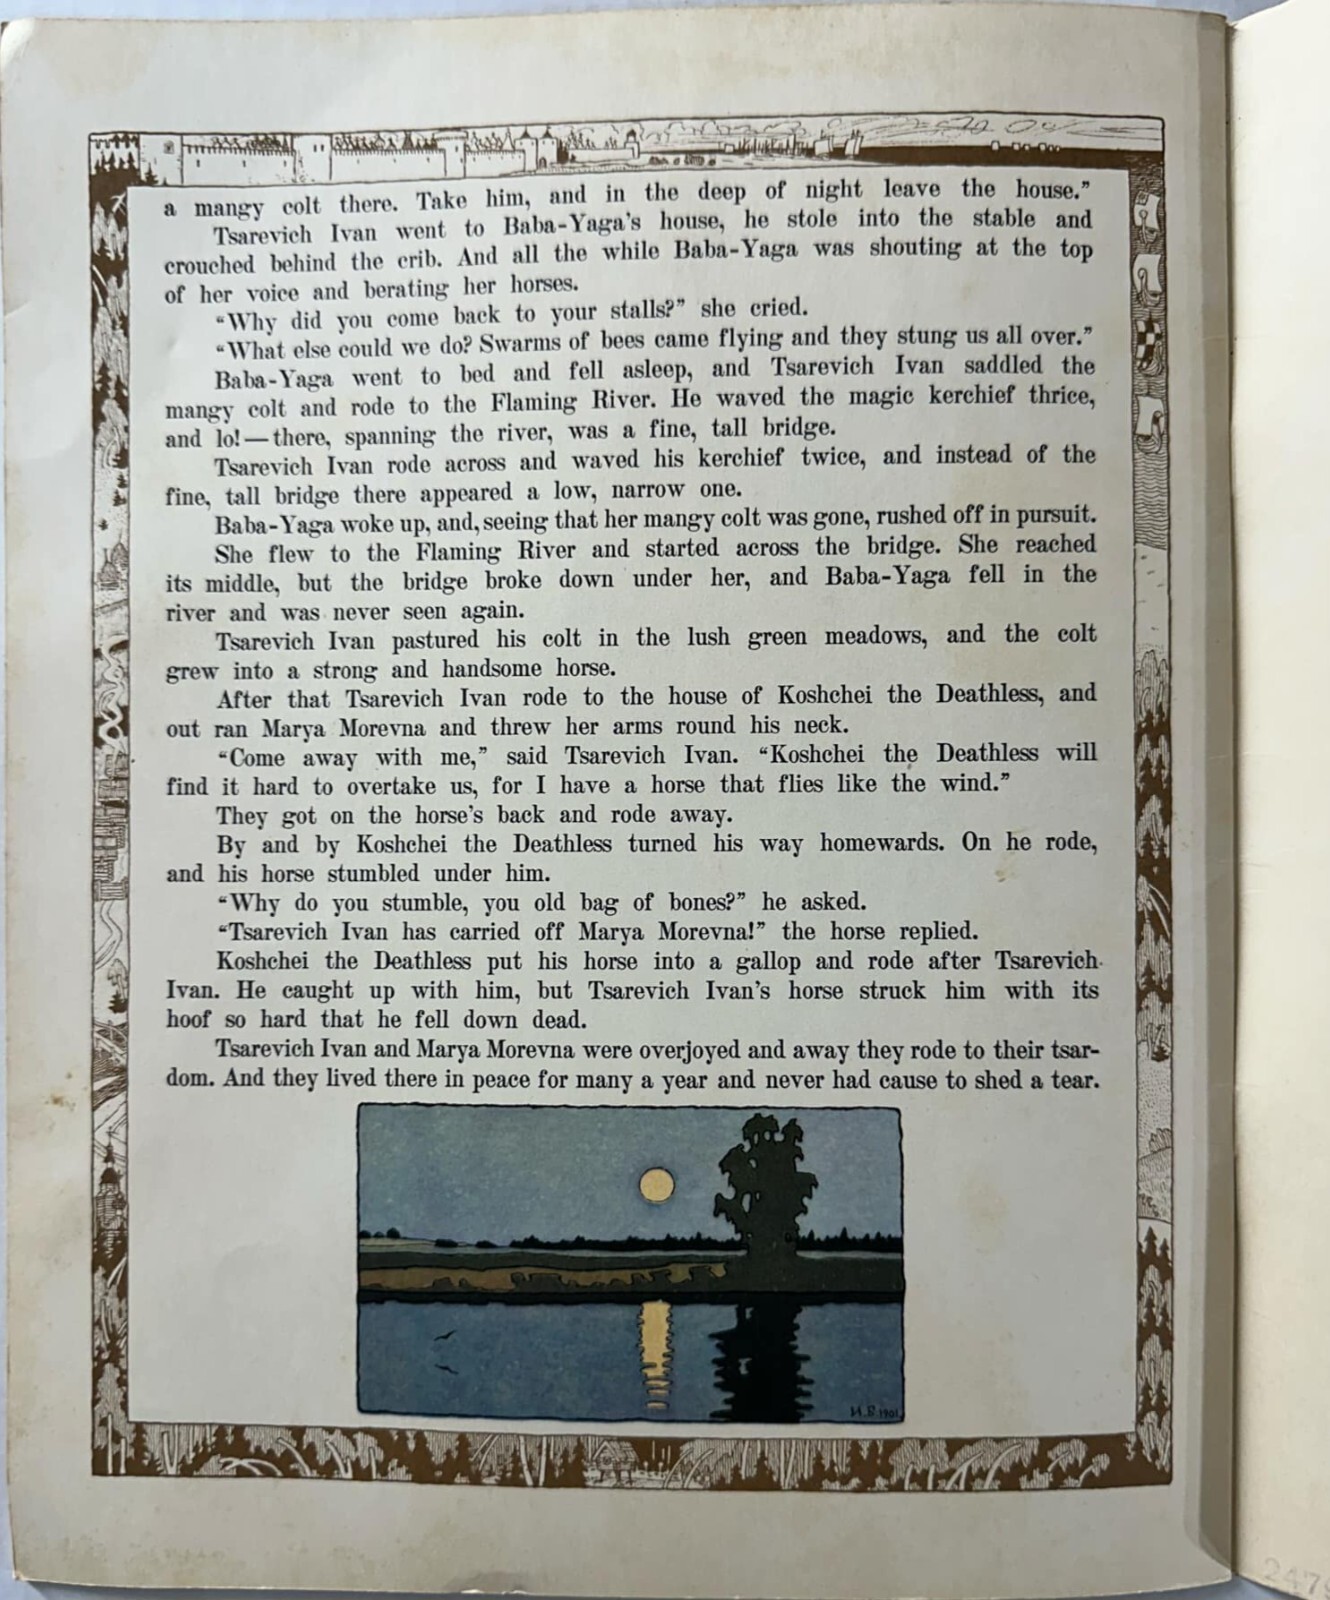 a mangy colt there. Take him, and in the deep of night leave the house.”
Tsarevich Ivan went to Baba-Yaga’s house, he stole into the stable and
crouched behind the crib. And all the while Baba-Yaga was shouting at the top
of her voice and berating her horses.
“Why did you come back to your stalls?” she cried.
“What else could we do? Swarms of bees came flying and they stung us all over.”
Baba-Yaga went to bed and fell asleep, and Tsarevich Ivan saddled the
mangy colt and rode to the Flaming River. He waved the magic kerchief thrice,
and lo! — there, spanning the river, was a fine, tall bridge.
Tsarevich Ivan rode across and waved his kerchief twice, and instead of the
fine, tall bridge there appeared a low, narrow one.
Baba-Yaga woke up, and, seeing that her mangy colt was gone, rushed off in pursuit.
She flew to the Flaming River and started across the bridge. She reached
its middle, but the bridge broke down under her, and Baba-Yaga fell in the
river and was never seen again.
Tsarevich Ivan pastured his colt in the lush green meadows, and the colt
grew into a strong and handsome horse.
After that Tsarevich Ivan rode to the house of Koshchei the Deathless, and
out ran Marya Morevna and threw her arms round his neck.
“Come away with me,” said Tsarevich Ivan. “Koshchei the Deathless will
find it hard to overtake us, for I have a horse that flies like the wind.”
They got on the horse’s back and rode away.
By and by Koshchei the Deathless turned his way homewards. On he rode,
and his horse stumbled under him.
“Why do you stumble, you old bag of bones?” he asked.
“Tsarevich Ivan has carried off Marya Morevna!” the horse replied.
Koshchei the Deathless put his horse into a gallop and rode after Tsarevich
Ivan. He caught up with him, but Tsarevich Ivan’s horse struck him with its
hoof so hard that he fell down dead.
Tsarevich Ivan and Marya Morevna were overjoyed and away they rode to their tsar-
dom. And they lived there in peace for many a year and never had cause to shed a tear.
И.Б. 1901